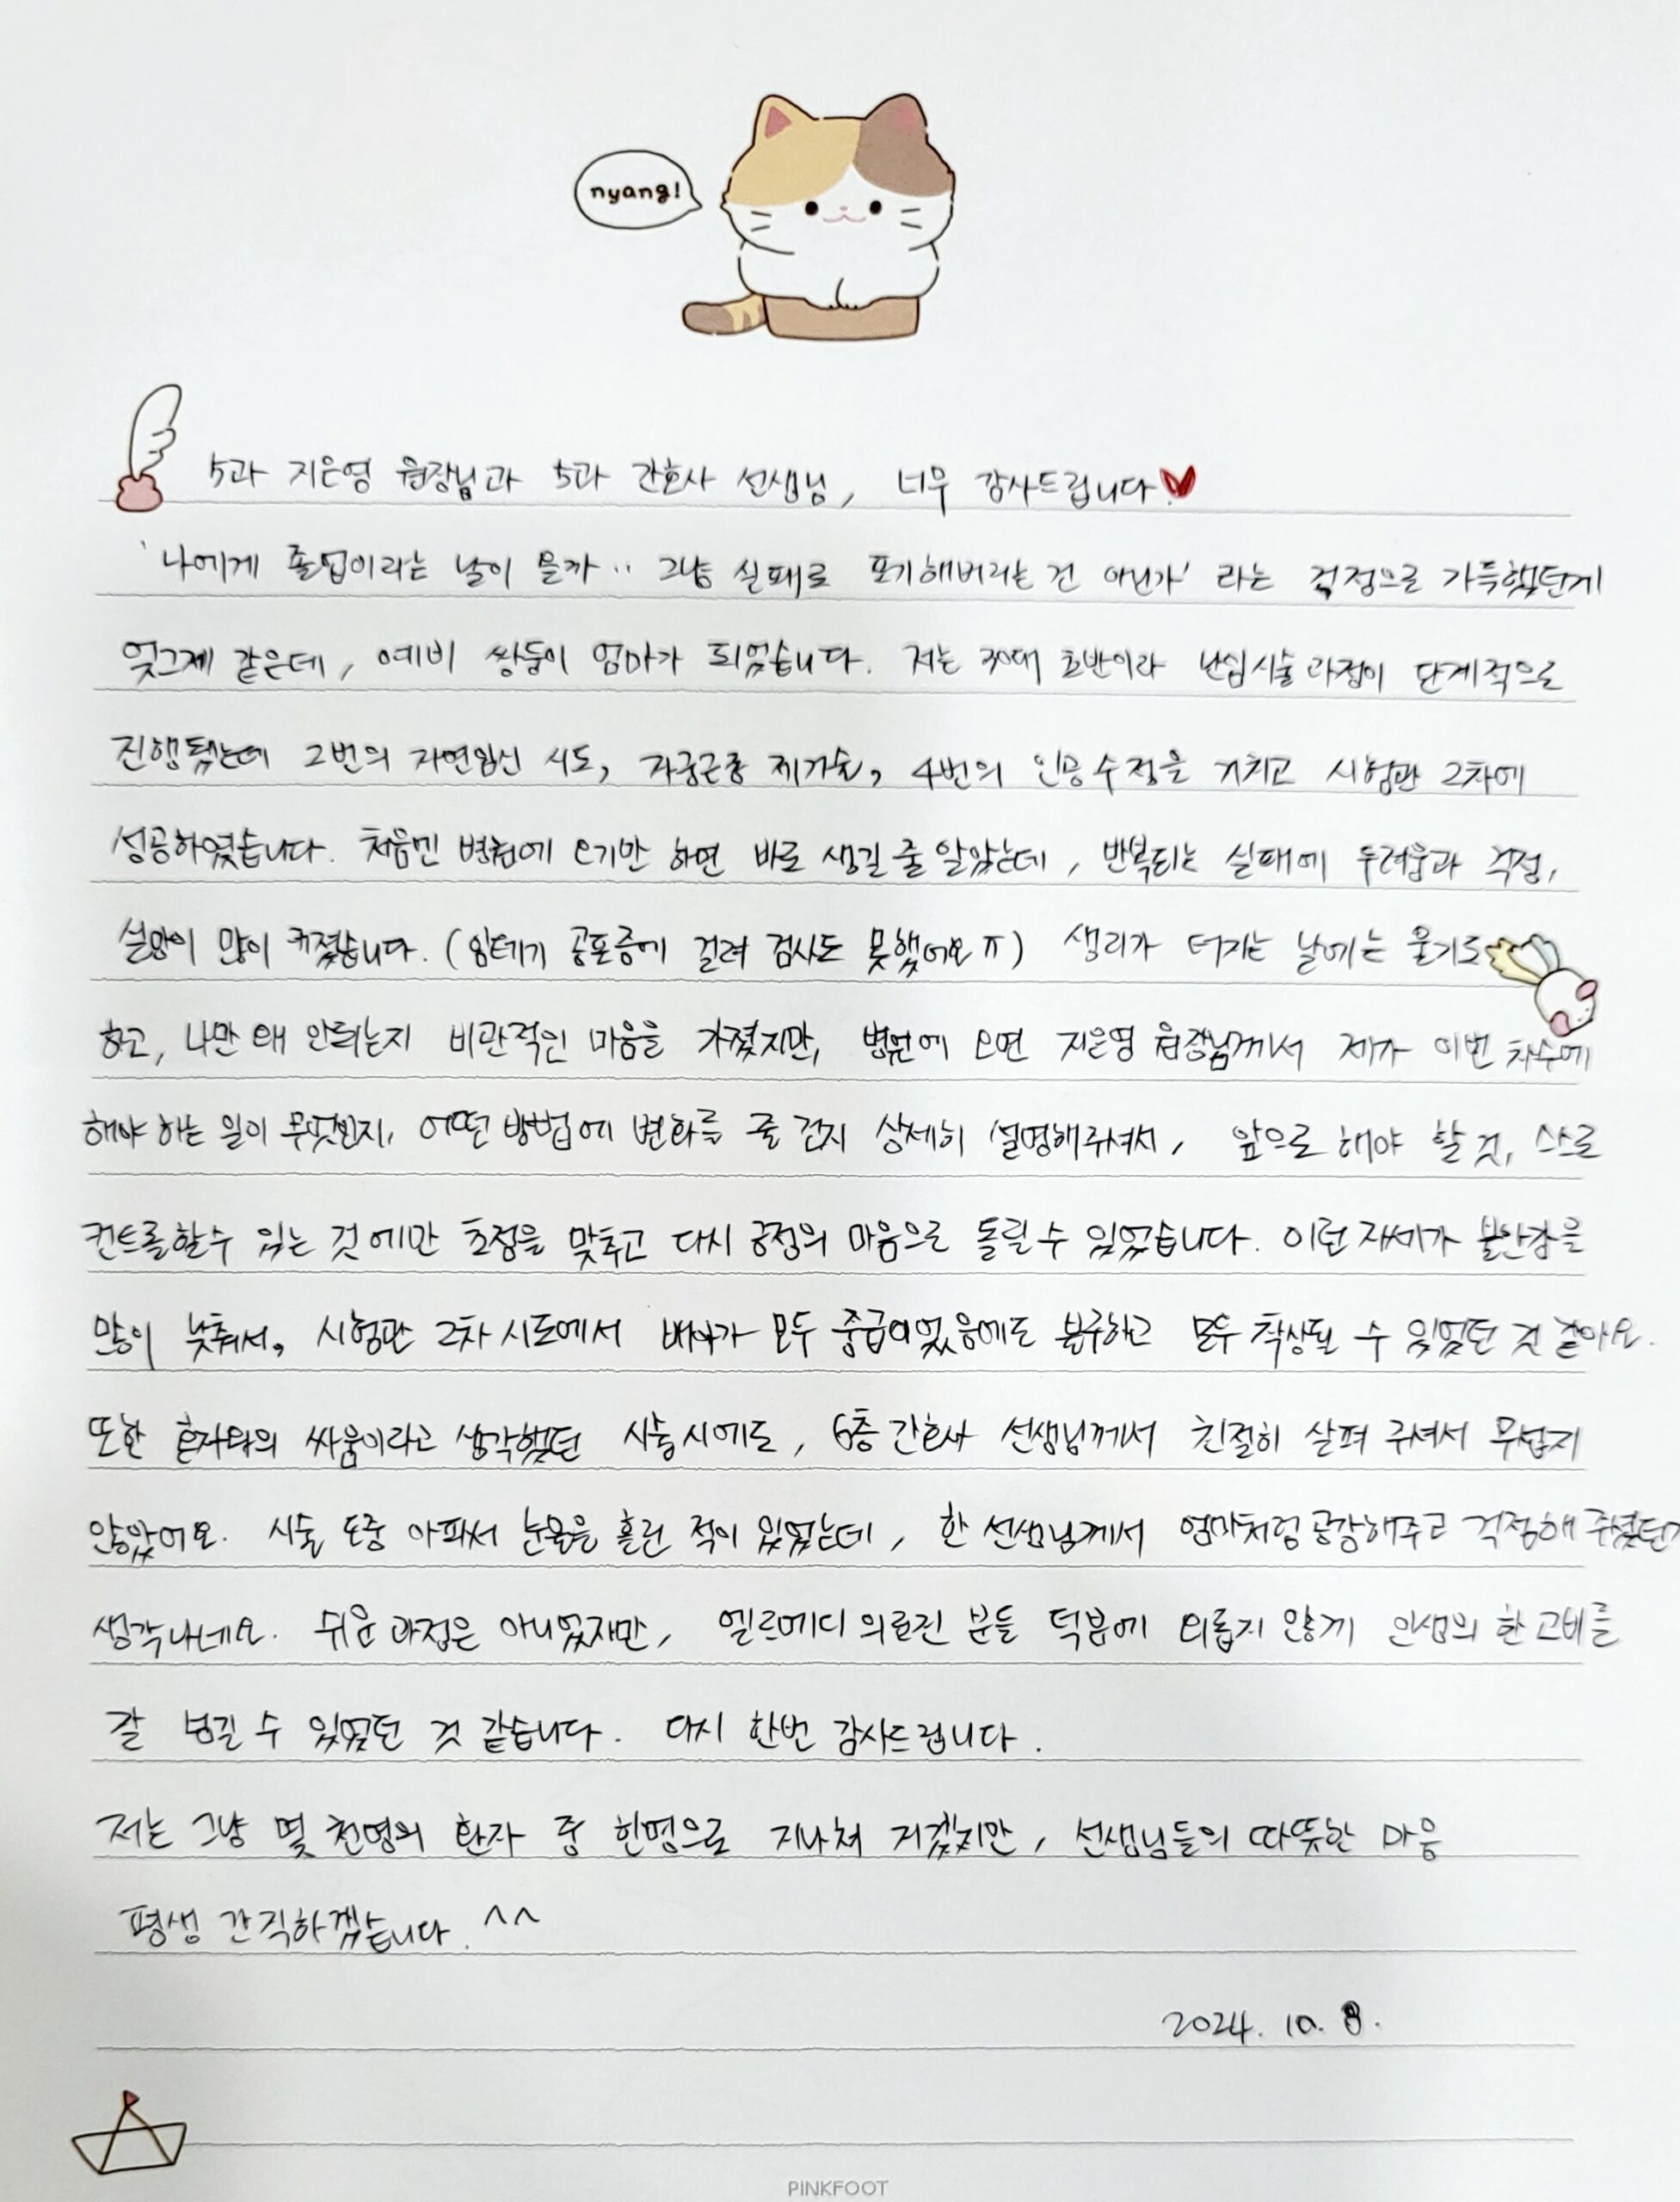 nyang!
5과 지은영 원장님과 5과 간호사 선생님, 너무 감사드립니다♥
'나에게 졸업이라는 날이 올까.. 그냥 실패로 포기해버리는 건 아닌가' 라는 걱정으로 가득했던게
엊그제 같은데, 예비 쌍둥이 엄마가 되었습니다. 저는 30대 초반이라 난임시술과정이 단계적으로
진행됐는데 2번의 자연임신 시도, 자궁근종 제거술, 4번의 인공수정을 거치고 시험관 2차에
성공하였습니다. 처음엔 병원에 오기만 하면 바로 생길 줄 알았는데, 반복되는 실패에 두려움과 걱정,
실망이 많이 커졌습니다. (임테기 공포증에 걸려 검사도 못했어요ㅠ) 생리가 터지는 날에는 울기도
하고, 나만 왜 안되는지 비관적인 마음을 가졌지만, 병원에 오면 지은영 원장님께서 제가 이번 차수에
해야 하는 일이 무엇인지, 어떤 방법에 변화를 줄 건지 상세히 설명해주셔서, 앞으로 해야 할 것, 스스로
컨트롤할수 있는 것에만 초점을 맞추고 다시 긍정의 마음으로 돌릴 수 있었습니다. 이런 자세가 불안감을
많이 낮춰서, 시험관 2차 시도에서 배아가 모두 중급이었음에도 불구하고 모두 착상될 수 있었던 것 같아요.
또한 혼자와의 싸움이라고 생각했던 시술시에도, 6층 간호사 선생님께서 친절히 살펴 주셔서 무섭지
않았어요. 시술 도중 아파서 눈물을 흘린 적이 있었는데, 한 선생님께서 엄마처럼 공감해주고 걱정해 주셨던게
생각나네요. 쉬운 과정은 아니었지만, 엘르메디 의료진 분들 덕분에 외롭지 않게 인생의 한 고비를
잘 넘길 수 있었던 것 같습니다. 다시 한번 감사드립니다.
저는 그냥 몇 천명의 환자 중 한명으로 지나쳐 가겠지만, 선생님들의 따뜻한 마음
평생 간직하겠습니다. ^^
2024. 10. 8.
PINKFOOT